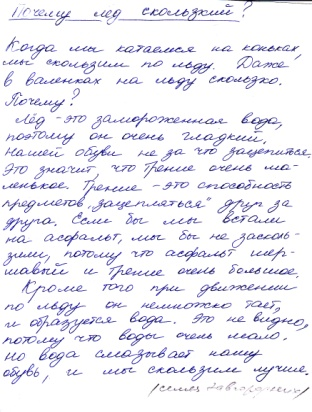 Почему лед скользкий?
Когда мы катаемся на коньках,
мы скользим по льду. Даже
в валенках на льду скользко.
Почему?
Лёд - это замороженная вода,
поэтому он очень гладкий,
нашей обуви не за что зацепиться.
Это значит, что трение очень ма-
ленькое. Трение - это способность
предметов „зацепляться" друг за
друга. Если бы мы встали
на асфальт, мы бы не засколь-
зили, потому что асфальт шер-
шавый и трение очень большое.
Кроме того при движении
по льду он немножко тает,
и образуется вода. Это не видно,
потому что воды очень мало.
Но вода смазывает нашу
обувь, и мы скользим лучше.